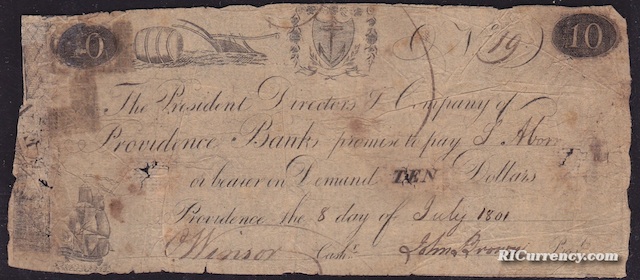 10 No 19 10
The President Directors & Company of
Providence Bank promise to pay J. Abor
or bearer on Demand TEN Dollars
Providence the 8 day of July 1801
O Winsor Cashr. John Brown Presdt.
RICurrency.com